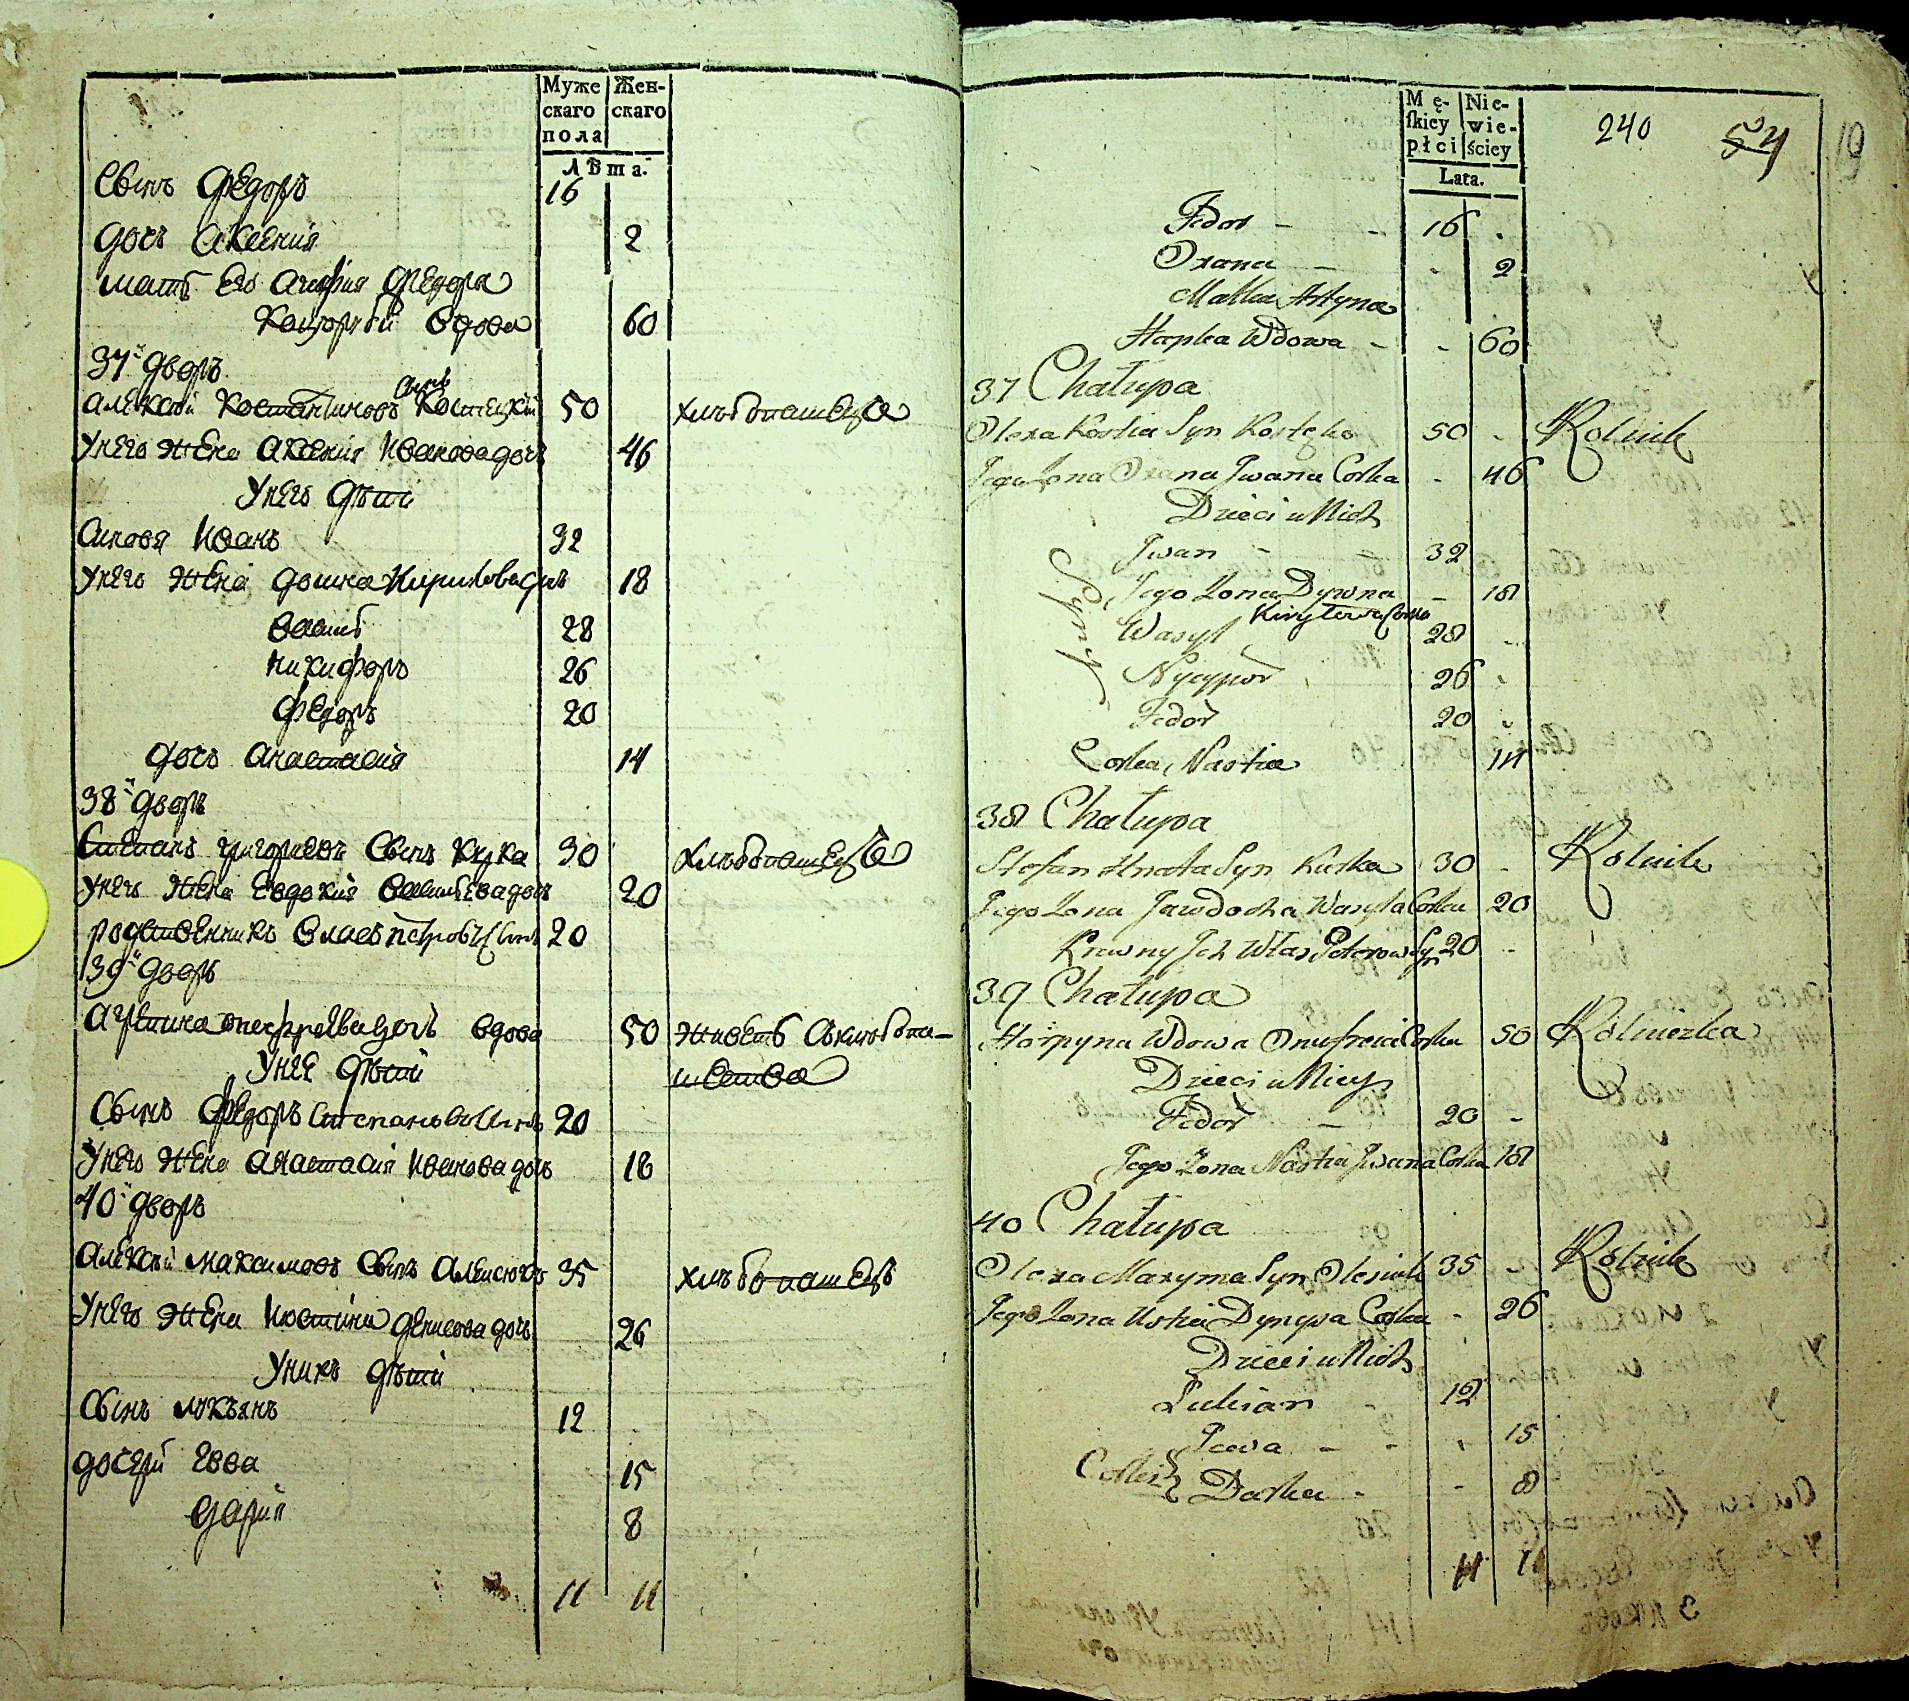 Муже Жен-
скаго скаго
пола
Лѣта.
Сынъ Федоръ 16
дочь Аксения 2
мать его Агафия Федора
вдова 60
37й дворъ
Алексѣй Костантиновъ Сынъ Костецкий 50 хлѣбопашецъ
У него жена Аксения Иванова дочь 46
У него дѣти
Синовя Иванъ 32
У него жена Домна Кирилова дочь 18
Василь 28
Никифоръ 26
Федоръ 20
дочь Анастасия 14
38й дворъ
Степанъ Григориевъ Сынъ Кирка 30 Хлѣбопашецъ
У него жена Евдокия Василиева дочь 20
родственникъ Власъ Петровъ Сынъ 20
39й дворъ
дочь вдова 50 живетъ Схлѣбопа-
шества
У нее дѣти
Сынъ Федоръ Степановъ Синъ 20
У него жена Анастасия Иванова дочь 18
40й дворъ
Алексѣй Максимовъ Сынъ Алексюкъ 35 хлѣбопашецъ
У него жена Юстина Денисова дочь 26
У нихъ дѣти
Сынъ Лукъянъ 12
дочери Евва 15
Дария 8
11 11
Mę- Nie-
ſkiey wie-
płci ściey
Lata.
240 54 19
Fedor - - 16 -
Oxana - - 2
Matka Hapka Wdowa - - 60
37 Chałupa
Olexa Kostia Syn Kostecki 50 - Rolnik
Jego Zona Oxana Jwana Corka - 46
Dzieci u Nich
Syny
Jwan - 32
Jego Zona Dywna - 18
Kiryłowa Corka
Wasyl 28 -
Nycypor 26 -
Fedor 20 -
Corka Nastia 14
38 Chałupa
Stefan Hnata Syn Kurka 30 - Rolnik
Jego Zona Jawdocha Wasyla Corka 20
Krewny Jch Włas Peterow Syn 20 -
39 Chałupa
Horpyna Wdowa Onufreia Corka 50 Rolniczka
Dzieci u Niey
Fedor - 20 -
Jego Zona Nastia Jwana Corka 18
40 Chałupa
Olexa Maxyma Syn Olesiuk 35 - Rolnik
Jego Zona Ustia Dynysa Corka - 26
Dzieci u Nich
Lukian - 12
Corki
Jewa - - 15
Darka - - 8
11 11